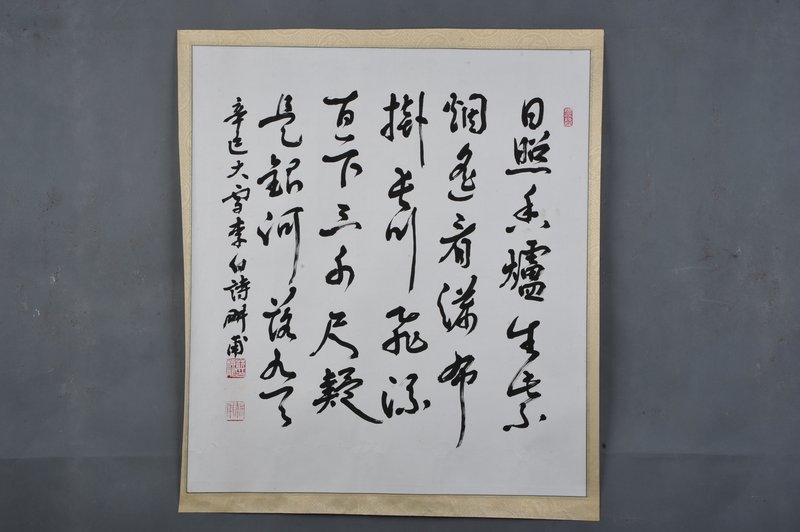 日照香爐生紫
烟遙看瀑布
掛長川飛流
直下三千尺疑
是銀河落九天
辛巳大雪李白詩